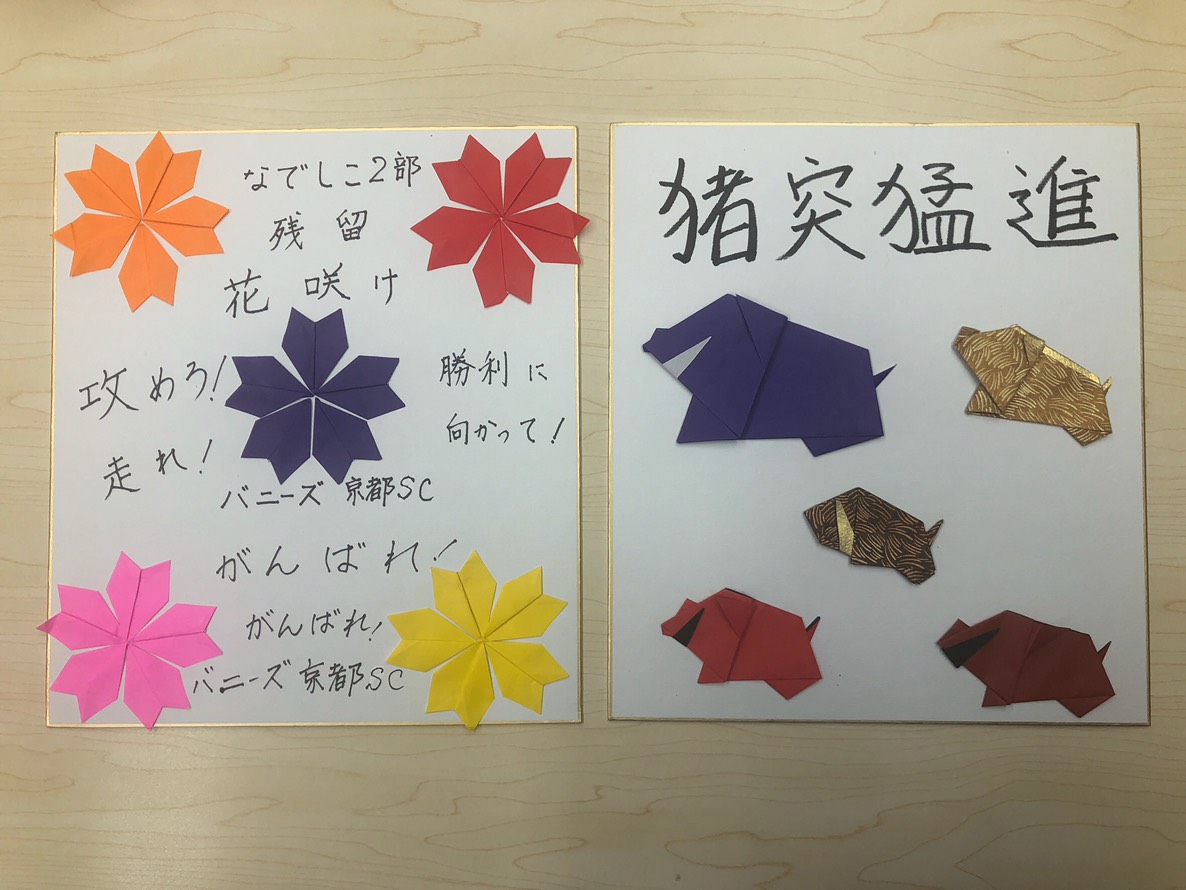 なでしこ2部
残留
花咲け
攻めろ!
走れ!
勝利に
向かって!
バニーズ 京都SC
がんばれ!
がんばれ!
バニーズ 京都SC
猪突猛進